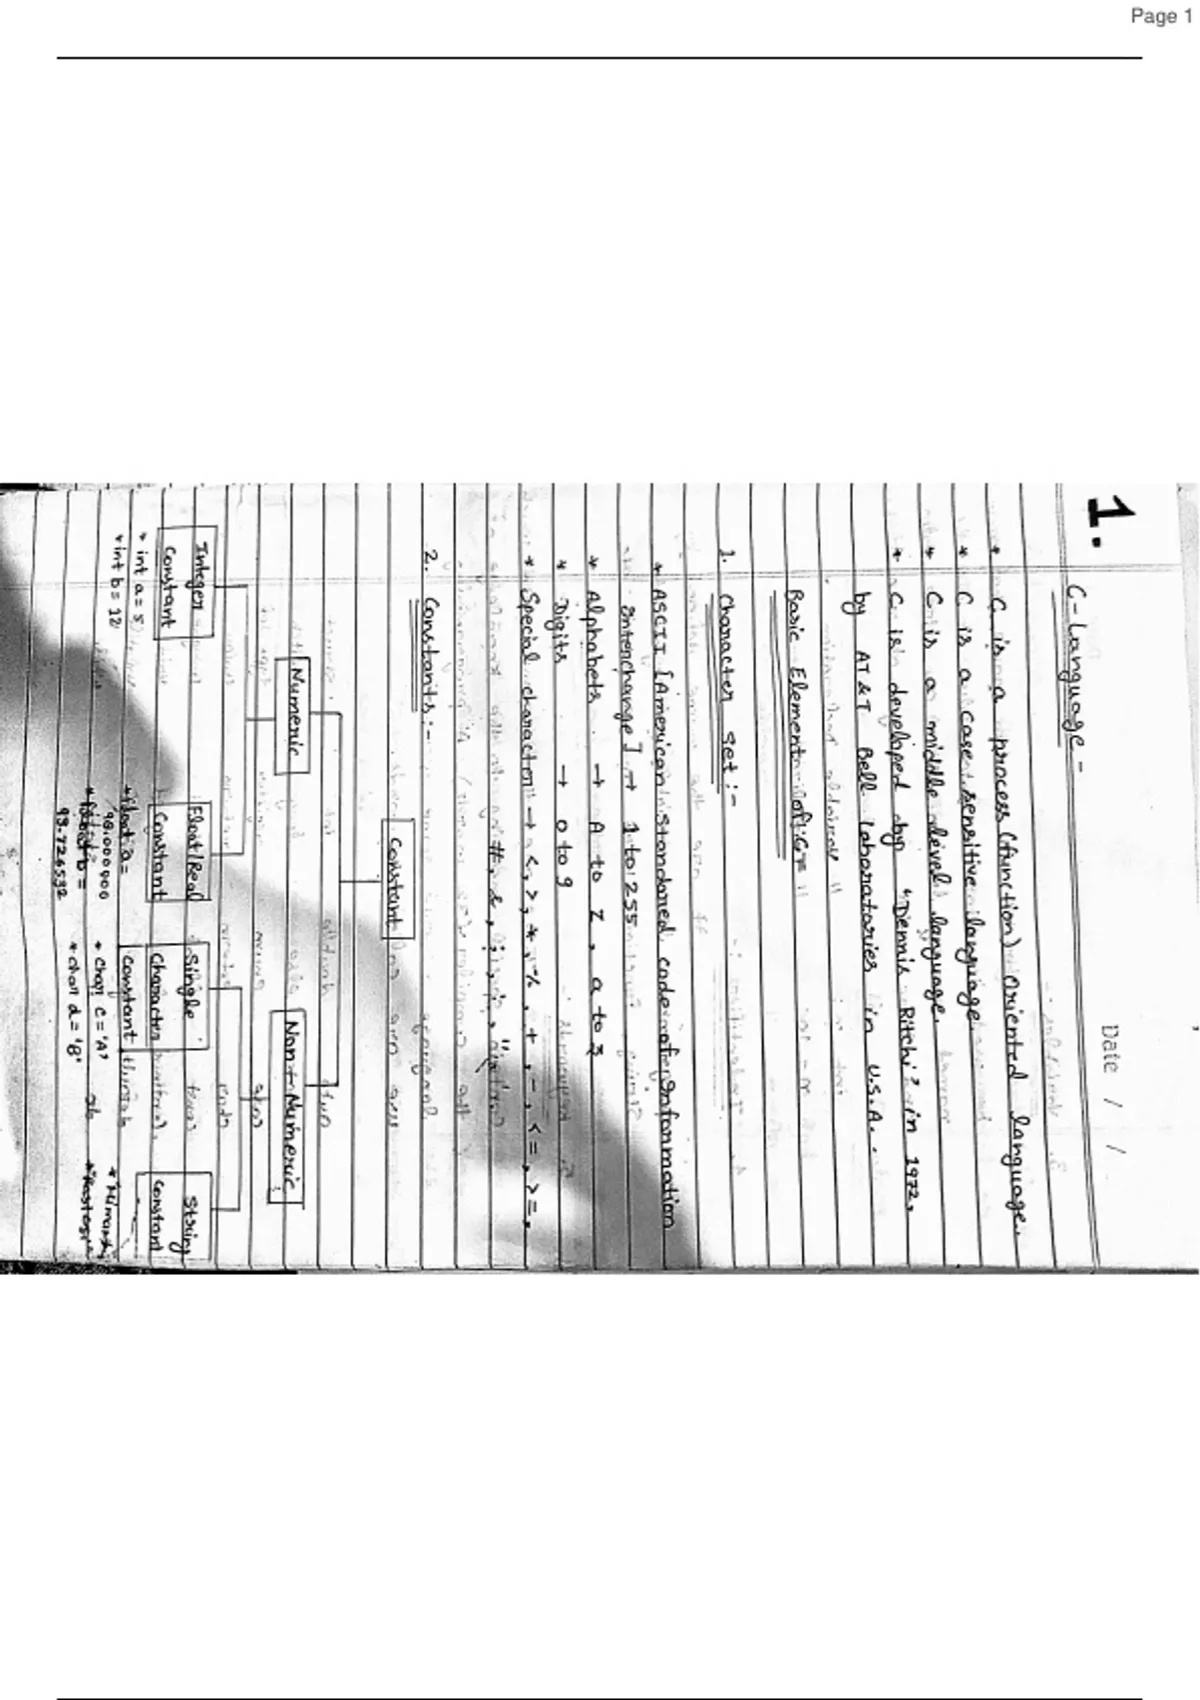 Page 1
1.
Date / /
C-Language-
* C is a process (function) oriented language.
* C is a case sensitive language.
* C is a middle level language.
* C is developed by "Dennis Ritchi" in 1972,
by AT&T Bell Laboratories in U.S.A.
Basic Element of C-
1. Character Set:-
* ASCII [American Standared code of Information
Interchange] → 1 to 255
* Alphabets → A to Z, a to z
* Digits → 0 to 9
* Special character → <, >, *, %, +, -, <=, >=,
#, &, ;
2. Constants:-
Constant
Numeric
Non-Numeric
Integer
Constant
Float/Real
Constant
Single
Character
Constant
String
Constant
* int a = 5
* int b = 12
* float a =
98.000000
* float b =
93.726532
* char c = 'A'
* char d = 'B'